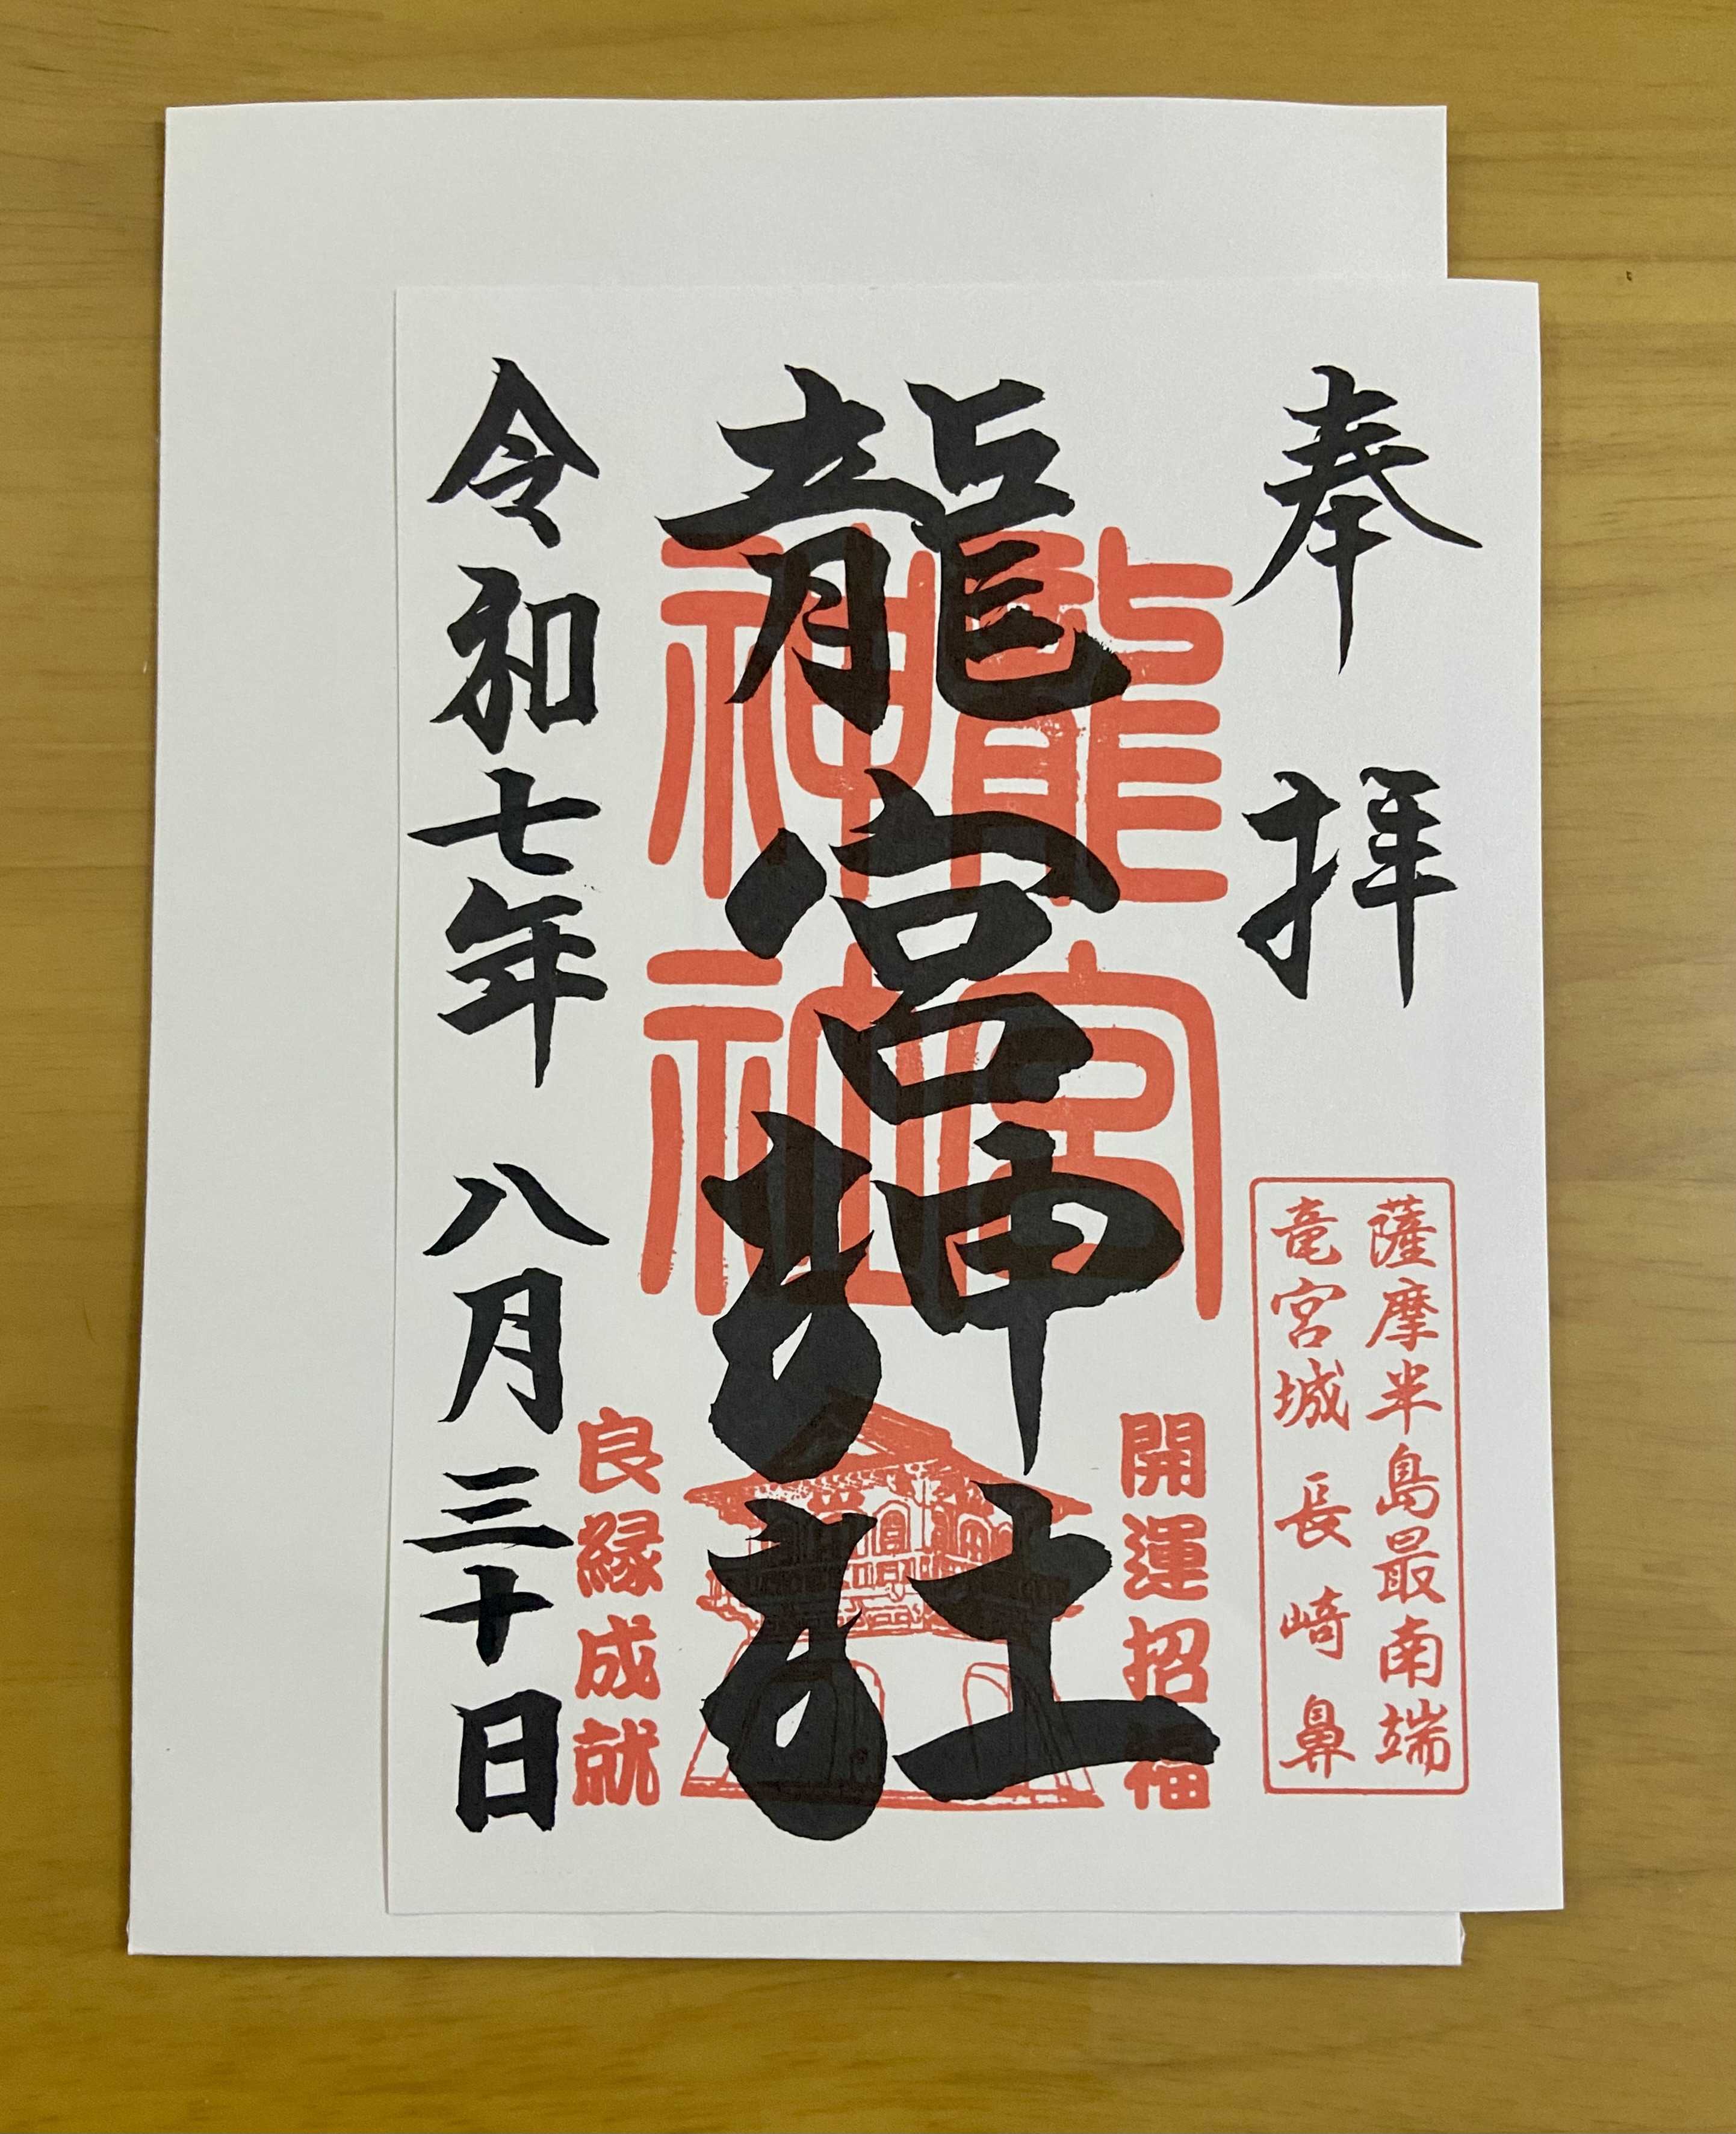 奉拝
薩摩半島最南端
竜宮城 長崎鼻
龍宮神社
龍宮
神社
開運招福
良縁成就
令和七年 八月三十日